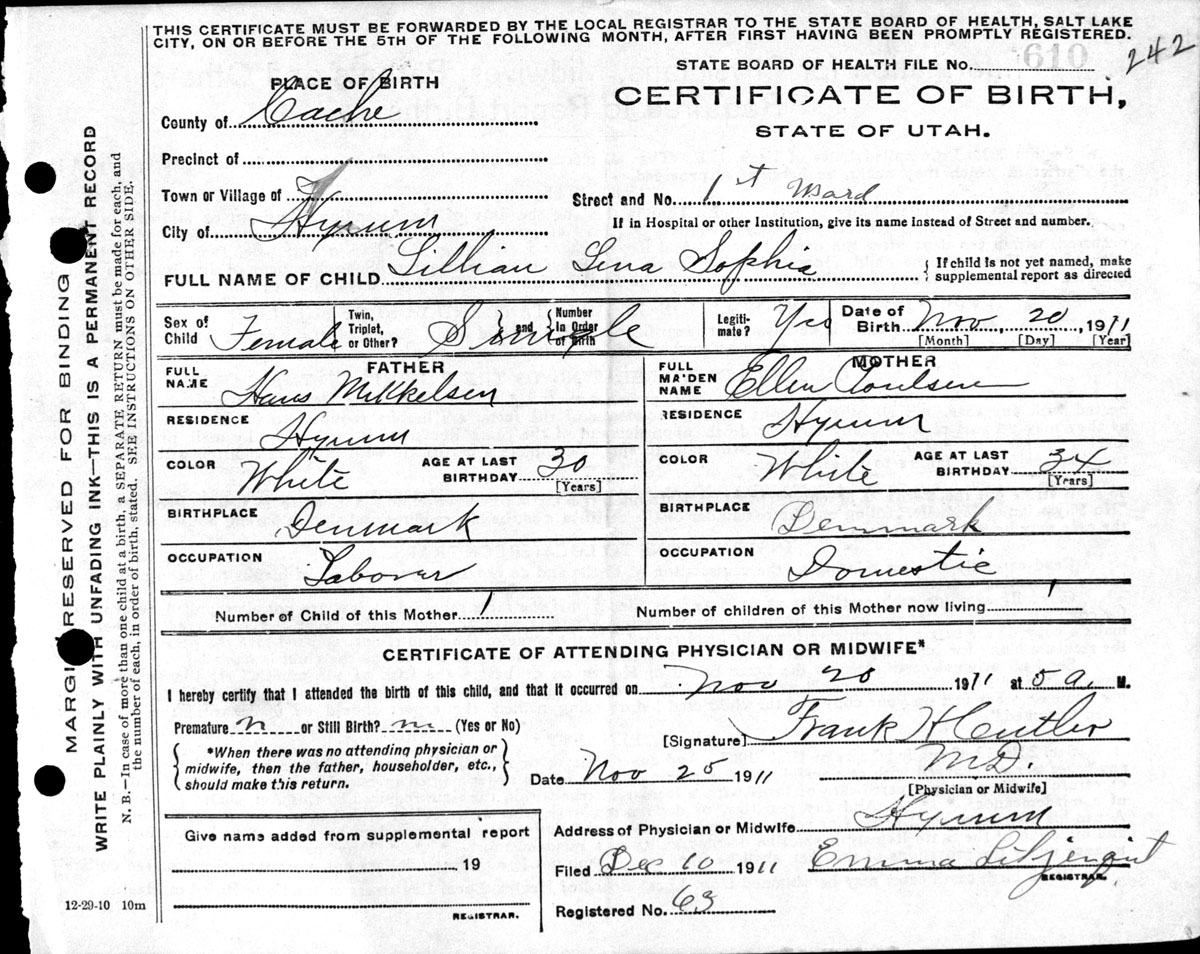 THIS CERTIFICATE MUST BE FORWARDED BY THE LOCAL REGISTRAR TO THE STATE BOARD OF HEALTH, SALT LAKE
CITY, ON OR BEFORE THE 5TH OF THE FOLLOWING MONTH, AFTER FIRST HAVING BEEN PROMPTLY REGISTERED.
242
STATE BOARD OF HEALTH FILE No. 610
PLACE OF BIRTH
CERTIFICATE OF BIRTH,
STATE OF UTAH.
County of Cache
Precinct of
Town or Village of
Street and No. 1st Ward
City of Hyrum
If in Hospital or other Institution, give its name instead of Street and number.
FULL NAME OF CHILD Lillian Lena Sophia { If child is not yet named, make supplemental report as directed
Sex of Child Female Twin, Triplet, or Other? Single and { Number in Order of Birth Legiti-mate? Yes Date of Birth Nov, 20, 1911
[Month] [Day] [Year]
FATHER
MOTHER
FULL NAME Hans Mikkelsen
FULL MAIDEN NAME Ellen Poulsen
RESIDENCE Hyrum
RESIDENCE Hyrum
COLOR White AGE AT LAST BIRTHDAY 30 [Years]
COLOR White AGE AT LAST BIRTHDAY 34 [Years]
BIRTHPLACE Denmark
BIRTHPLACE Denmark
OCCUPATION Laborer
OCCUPATION Domestic
Number of Child of this Mother 1
Number of children of this Mother now living 1
CERTIFICATE OF ATTENDING PHYSICIAN OR MIDWIFE*
I hereby certify that I attended the birth of this child, and that it occurred on Nov 20 1911 at 5 a. M.
Premature n or Still Birth? n (Yes or No)
[Signature] Frank H Cutler
M.D.
[Physician or Midwife]
{ *When there was no attending physician or
midwife, then the father, householder, etc.,
should make this return. }
Date Nov 25 1911
Address of Physician or Midwife Hyrum
Give name added from supplemental report
19
REGISTRAR.
Filed Dec 10 1911 Emma Liljenquist
REGISTRAR.
Registered No. 63
12-29-10 10m
MARGIN RESERVED FOR BINDING
WRITE PLAINLY WITH UNFADING INK—THIS IS A PERMANENT RECORD
N. B.—In case of more than one child at a birth, a SEPARATE RETURN must be made for each, and
the number of each, in order of birth, stated. SEE INSTRUCTIONS ON OTHER SIDE.